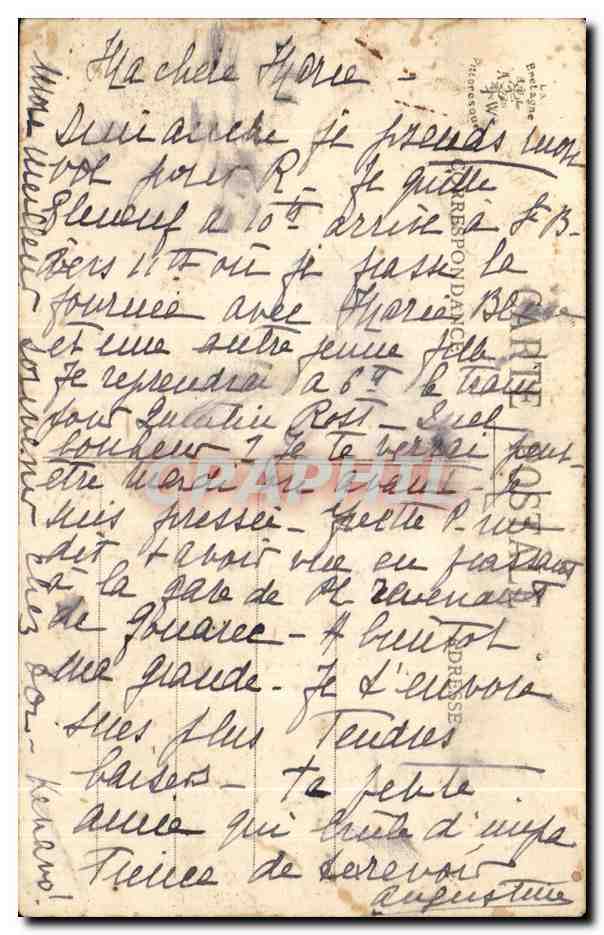 Ma chère Marie -
Dimanche je prends mon
vol pour R - Je quitte
Pleneuf à 10h arrive à St B-
vers 11h où je passe la
journée avec Marie
et une autre jeune fille
Je reprendrai à 6h le train
pour Quintin Rost - Quel
bonheur ! Je te verrai peut-
être mardi ou avant - Je
suis pressée - Yvette P. m'a
dit t'avoir vue en passant
à la gare de Pl revenant
de Gouarec - A bientôt
ma grande - Je t'envoie
mes plus Tendres
baisers - ta petite
amie qui brûle d'impa
Tience de te revoir
Augustine
meilleur souvenir chez toi - Kenavo!
La
Bretagne
Pittoresque
CARTE POSTALE
CORRESPONDANCE
ADRESSE
CPAPHIL